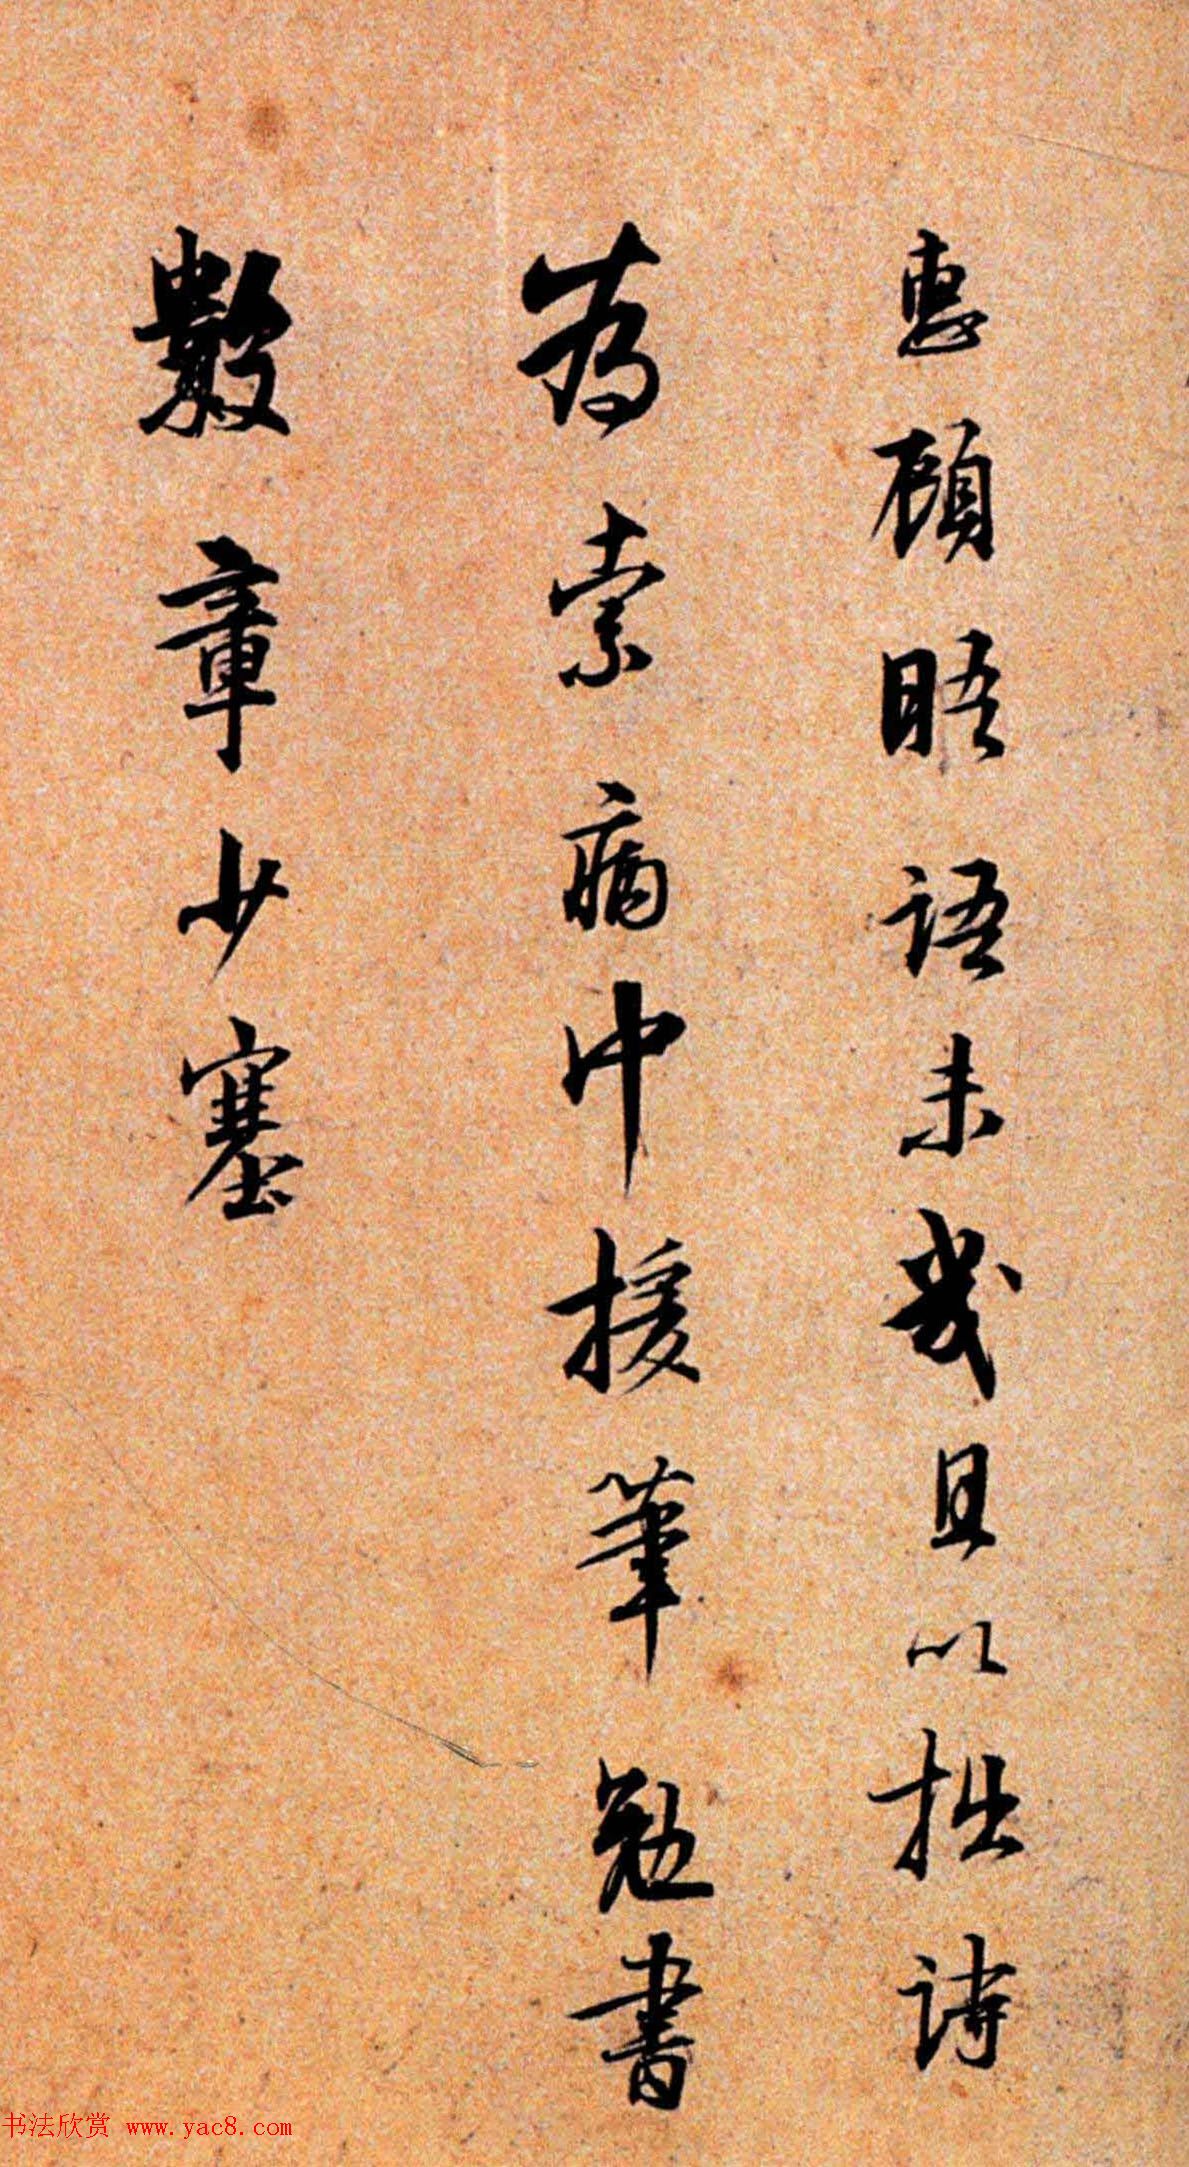 惠顧晤語未幾且以拙詩
為索病中援筆勉書
數章少塞
书法欣赏 www.yac8.com